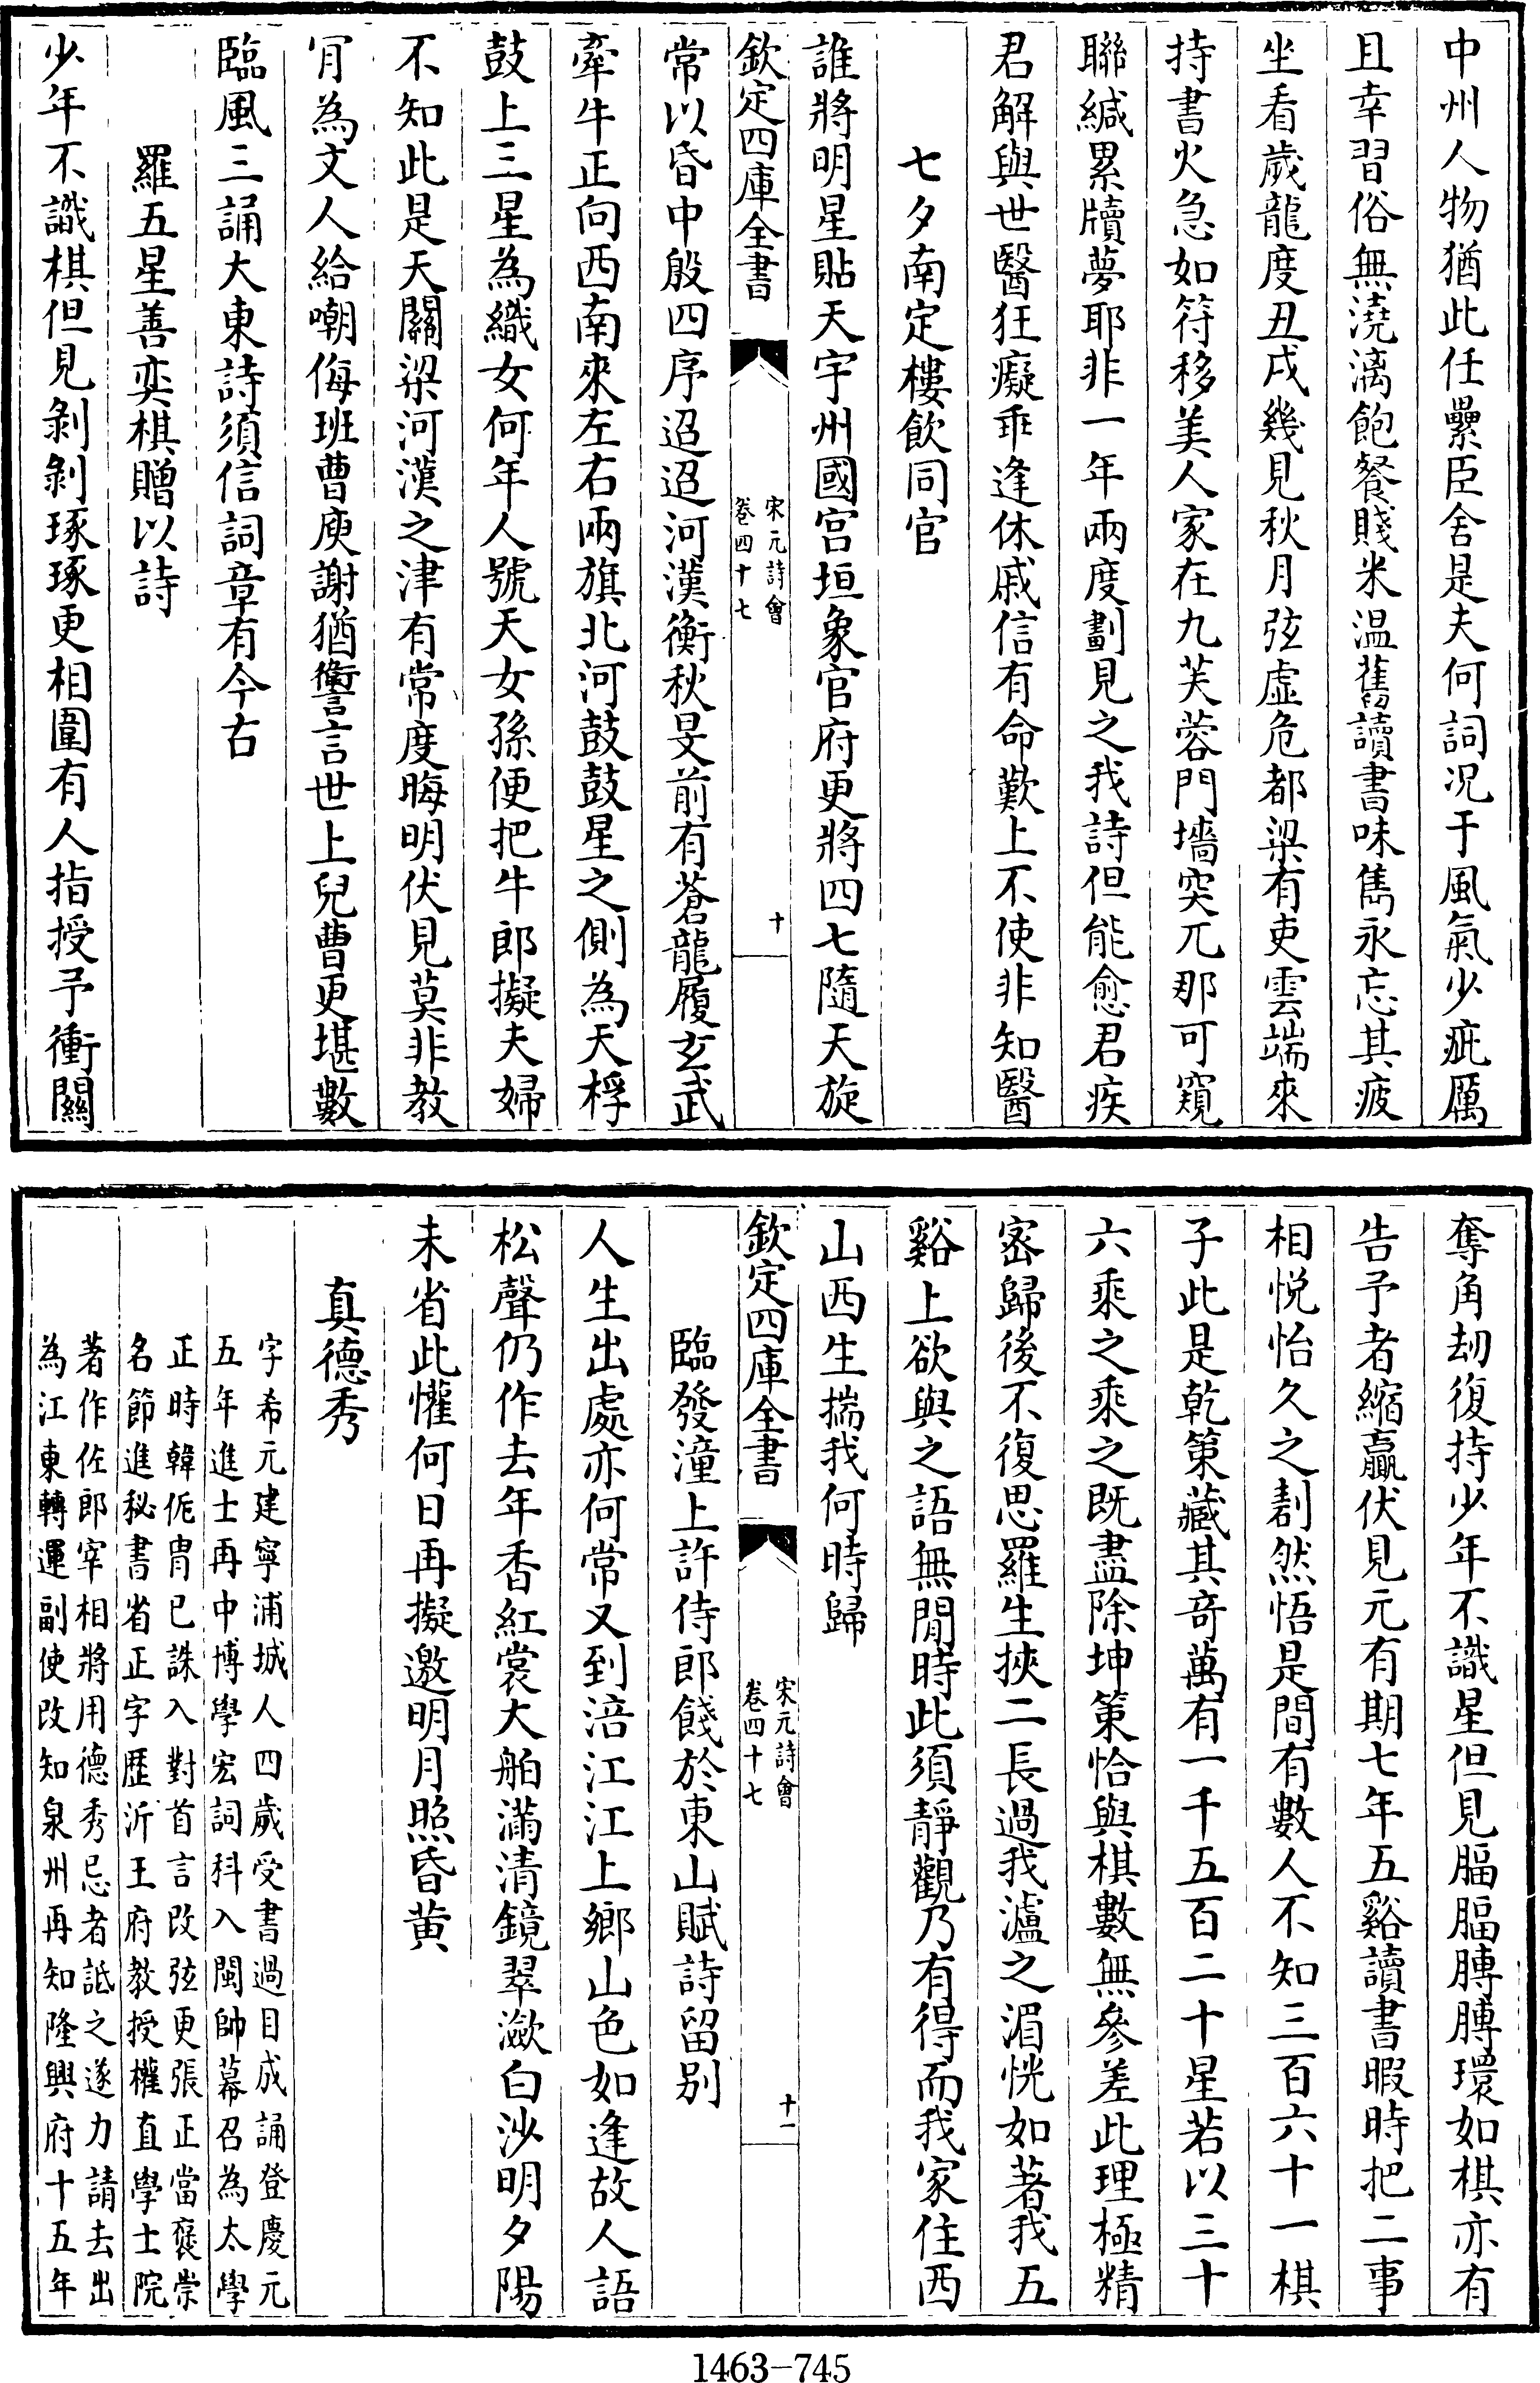 中州人物猶此任纍臣舍是夫何詞况于風氣少疵厲
且幸習俗無澆漓飽餐賤米温舊讀書味雋永忘其疲
坐看歲龍度丑戌幾見秋月弦虛危都梁有吏雲端來
持書火急如符移美人家在九芙蓉門墻突兀那可窺
聯緘累牘夢耶非一年兩度劃見之我詩但能愈君疾
君解與世醫狂癡乖逢休戚信有命歎上不使非知醫
七夕南定樓飲同官
誰將明星貼天宇州國宫垣象官府更將四七隨天旋
欽定四庫全書
宋元詩會
卷四十七
十
常以昏中殷四序迢迢河漢衡秋旻前有蒼龍履玄武
牽牛正向西南來左右兩旗北河鼓鼓星之側為天桴
鼓上三星為織女何年人號天女孫便把牛郎擬夫婦
不知此是天關梁河漢之津有常度晦明伏見莫非教
肎為文人給嘲侮班曹庾謝猶讆言世上兒曹更堪數
臨風三誦大東詩須信詞章有今古
羅五星善奕棋贈以詩
少年不識棋但見剝剝琢琢更相圍有人指授予衝關
奪角刼復持少年不識星但見腷腷膊膊環如棋亦有
告予者縮贏伏見元有期七年五谿讀書暇時把二事
相悦怡久之劃然悟是間有數人不知三百六十一棋
子此是乾策藏其竒萬有一千五百二十星若以三十
六乘之乘之既盡除坤策恰與棋數無參差此理極精
宻歸後不復思羅生挾二長過我瀘之湄恍如著我五
谿上欲與之語無閒時此須靜觀乃有得而我家住西
山西生揣我何時歸
欽定四庫全書
宋元詩會
卷四十七
十一
臨發潼上許侍郎餞於東山賦詩留别
人生出處亦何常又到涪江江上鄉山色如逢故人語
松聲仍作去年香紅裳大舶滿清鏡翠瀲白沙明夕陽
未省此懽何日再擬邀明月照昏黄
真德秀
字希元建寧浦城人四歲受書過目成誦登慶元
五年進士再中博學宏詞科入閩帥幕召為太學
正時韓侂胄已誅入對首言改弦更張正當襃崇
名節進秘書省正字歷沂王府教授權直學士院
著作佐郎宰相將用德秀忌者詆之遂力請去出
為江東轉運副使改知泉州再知隆興府十五年
1463-745